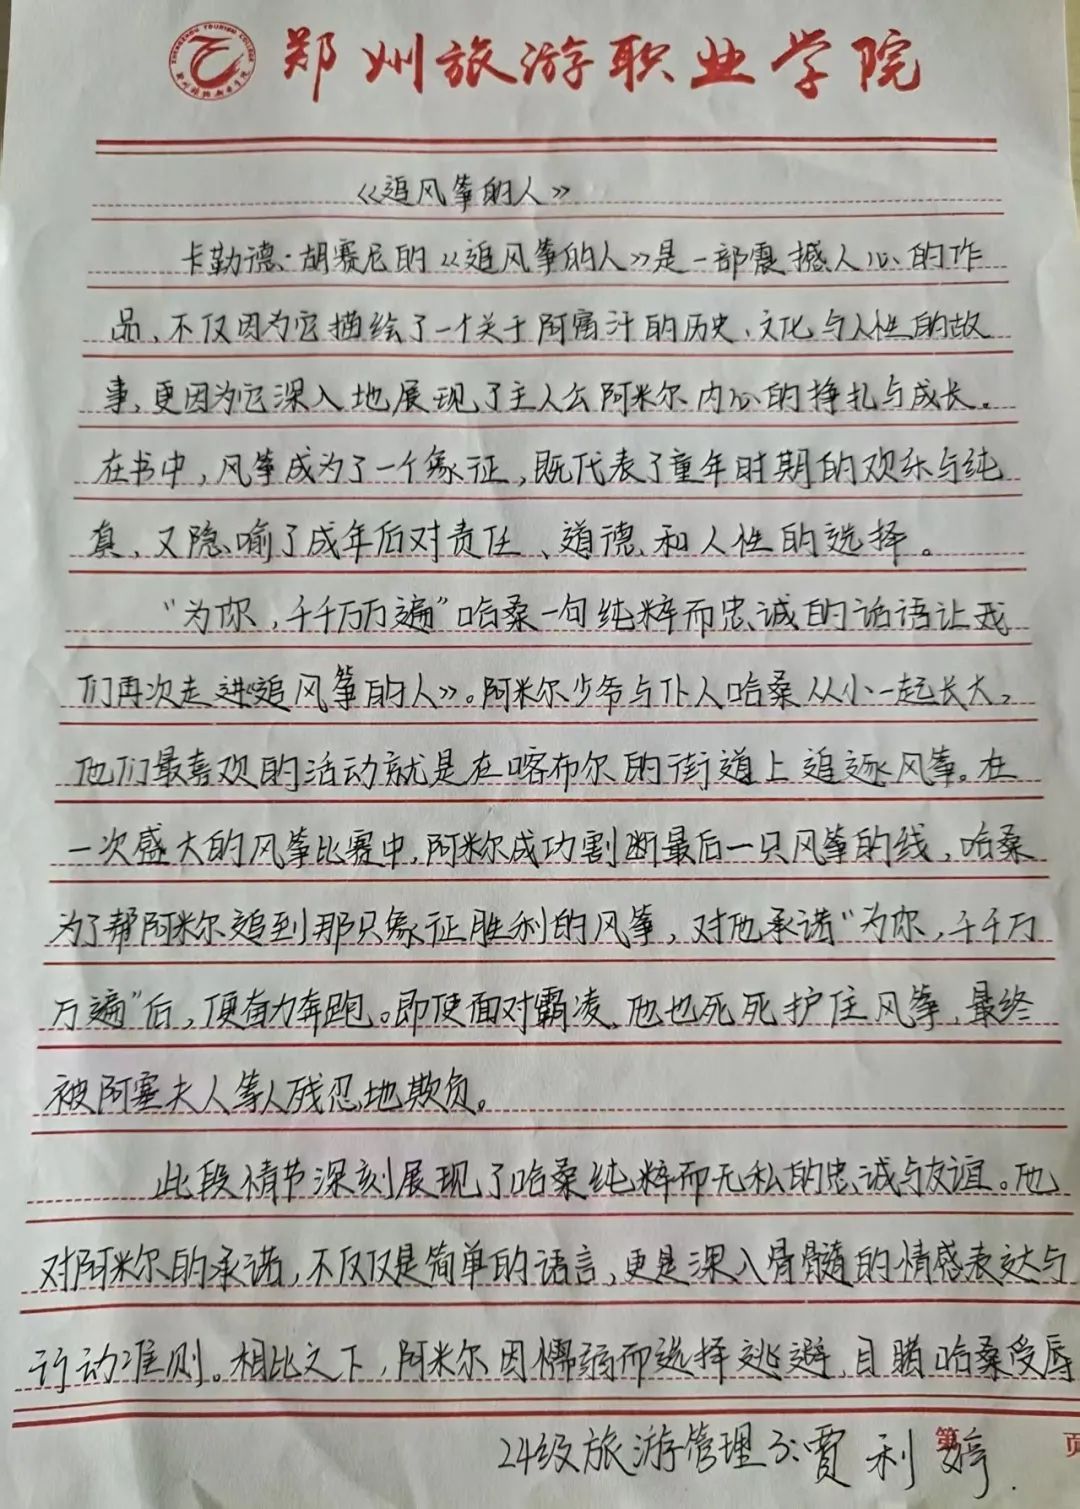 ZHENGZHOU TOURISM COLLEGE
郑州旅游职业学院
《追风筝的人》
卡勒德·胡赛尼的《追风筝的人》是一部震撼人心的作
品,不仅因为它描绘了一个关于阿富汗的历史、文化与人性的故
事,更因为它深入地展现了主人公阿米尔内心的挣扎与成长。
在书中,风筝成为了一个象征,既代表了童年时期的欢乐与纯
真,又隐喻了成年后对责任、道德和人性的选择。
“为你,千千万万遍”哈桑一句纯粹而忠诚的话语让我
们再次走进《追风筝的人》。阿米尔少爷与仆人哈桑从小一起长大,
他们最喜欢的活动就是在喀布尔的街道上追逐风筝。在
一次盛大的风筝比赛中,阿米尔成功割断最后一只风筝的线,哈桑
为了帮阿米尔追到那只象征胜利的风筝,对他承诺“为你,千千万
万遍”后,便奋力奔跑。即使面对霸凌,他也死死护住风筝,最终
被阿塞夫人等人残忍地欺负。
此段情节深刻展现了哈桑纯粹而无私的忠诚与友谊。他
对阿米尔的承诺,不仅仅是简单的语言,更是深入骨髓的情感表达与
行动准则。相比之下,阿米尔因懦弱而选择逃避,目睹哈桑受辱
第 页
24级旅游管理3:贾利婷.